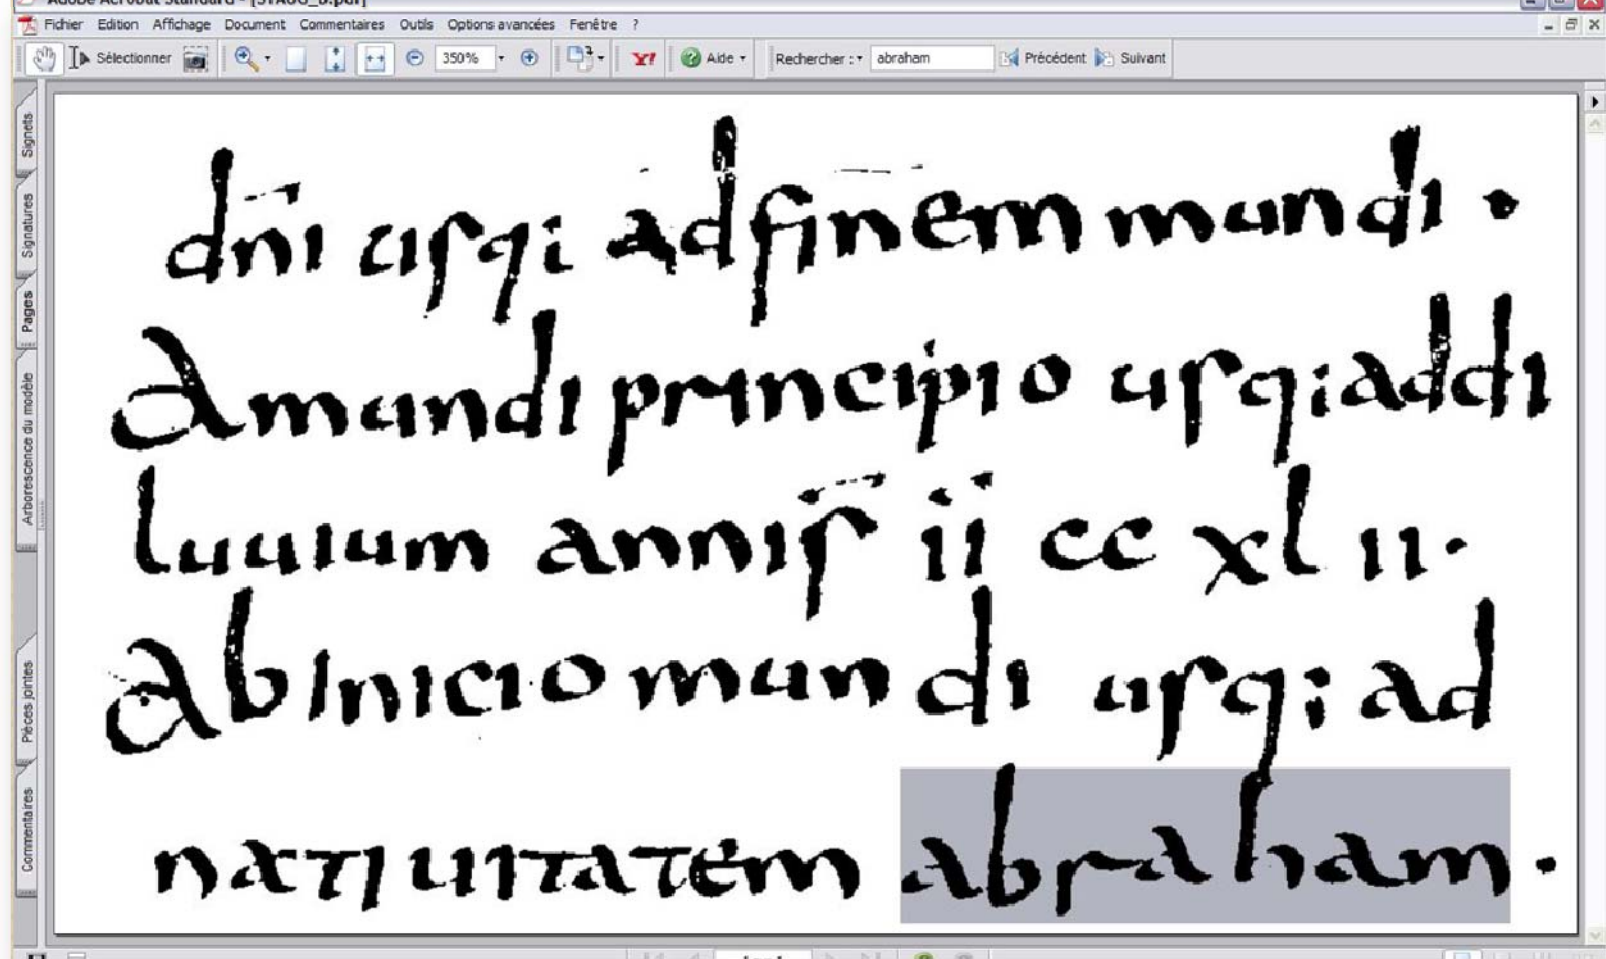 Adobe Acrobat Standard - [STAUG_B.pdf]
Fichier Edition Affichage Document Commentaires Outils Options avancées Fenêtre ?
Sélectionner 350% Y! Aide Rechercher : abraham Précédent Suivant
Signets
Signatures
Pages
Arborescence du modèle
Pièces jointes
Commentaires
dn̄i usq; ad finem mundi ·
A mundi principio usq; addi
luuium annis īī cc xl ii ·
Ab inicio mundi usq; ad
natiuitatem abraham ·